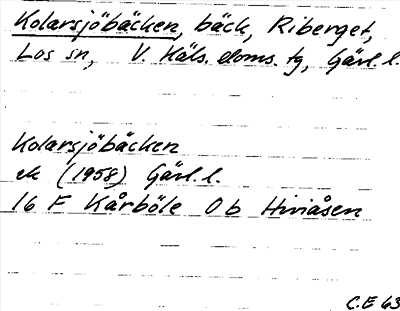 Kolarsjöbäcken, bäck, Riberget,
Los sn, V. Häls. doms. tg, Gävl. l.
Kolarsjöbäcken
ek (1958) Gävl. l.
16 F Kårböle 0 b Hiviåsen
C.E 63